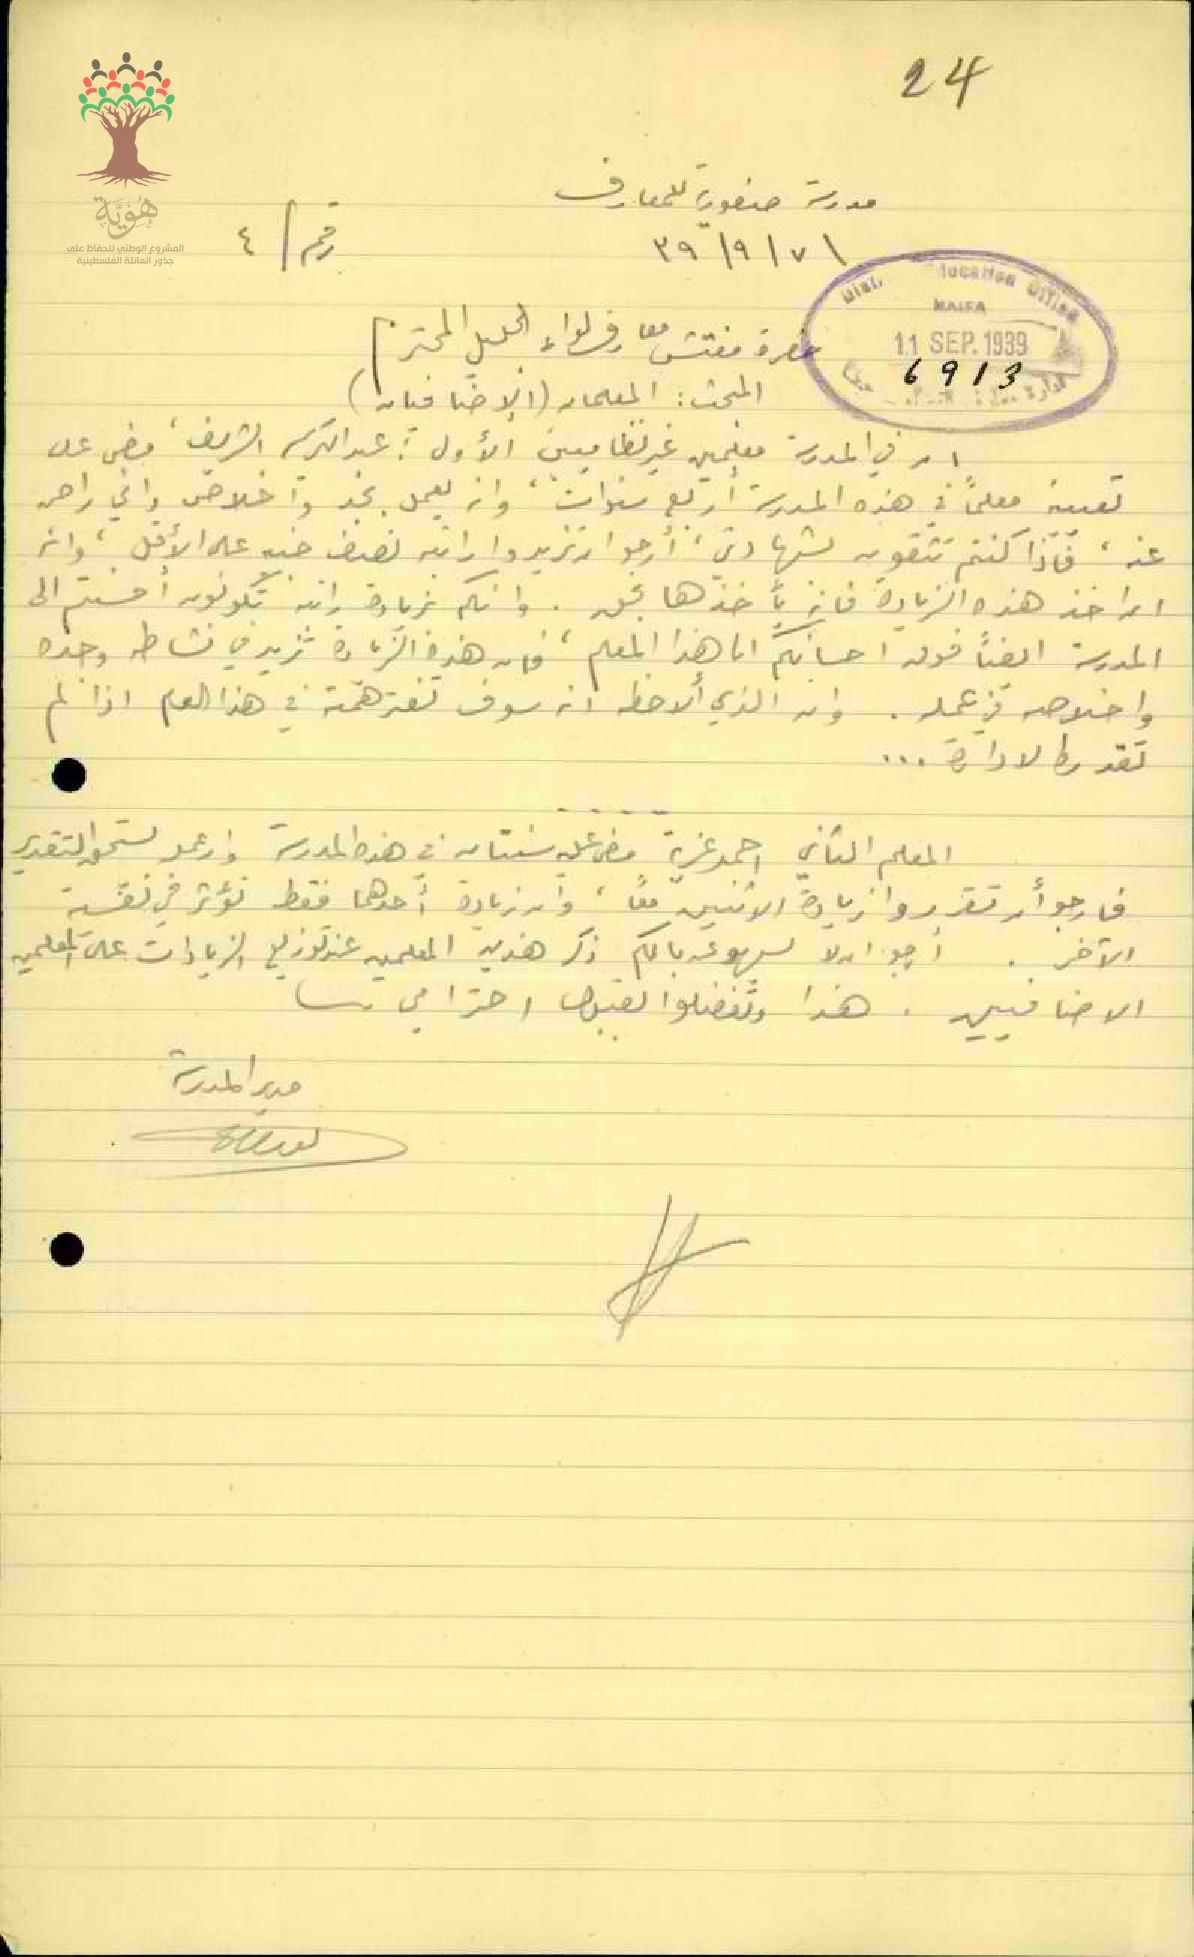 24
هُوِيَّة
المشروع الوطني للحفاظ على
جذور العائلة الفلسطينية
مدرسة صفورية للمعارف
رقم / ٤
٧ / ٩ / ٣٩
Education Office
HAIFA
11 SEP. 1939
6913
حضرة مفتش معارف لواء الجليل المحترم
المبحث: المعلمان (الإضافيان)
ان في المدرسة معلمين غير نظاميين الأول: عبد الكريم الشريف، مضى على
تعيينه معلماً في هذه المدرسة أربع سنوات، وانه يعمل بجد وأخلاص واني راض
عنه، فأذا كنتم تثقون بشهادتي، أرجو ان تزيدوا راتبه نصف جنيه على الأقل، وانه
اذا اخذ هذه الزيادة فانه يأخذها بحق. وانكم بزيادة راتبه تكونون أحسنتم الى
المدرسة ايضاً فوق احسانكم الى هذا المعلم، فان هذه الزيادة تزيد في نشاطه وجده
واخلاصه في عمله. وان الذي ألاحظه انه سوف تفتر همته في هذا العام اذا لم
تقدره الادارة ...
المعلم الثاني احمد مضى عليه سنتان في هذه المدرسة وعمله يستحق التقدير
فارجو أن تقرروا زيادة الاثنين معاً، وان زيادة أحدهما فقط تؤثر في نفسية
الآخر. أرجو ان لا يسهو عن بالكم ذكر هذين المعلمين عند توزيع الزيادات على المعلمين
الاضافيين. هذا وتفضلوا بقبول احترامي
مدير المدرسة